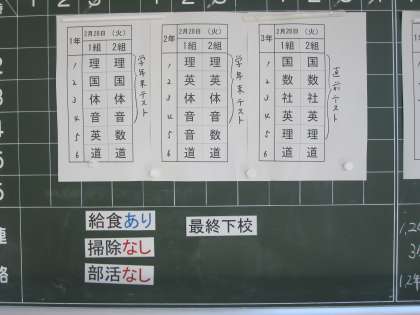 1年 2月28日 (火)
1組 2組
1 理 理
2 国 国
3 体 体
4 音 音
5 英 数
6 道 道
学年末テスト
2年 2月28日 (火)
1組 2組
1 理 理
2 英 英
3 体 体
4 音 音
5 数 数
6 道 道
学年末テスト
3年 2月28日 (火)
1組 2組
1 国 国
2 数 数
3 社 社
4 英 英
5 理 理
6 道 道
直前テスト
給食あり
掃除なし
部活なし
最終下校
連
絡